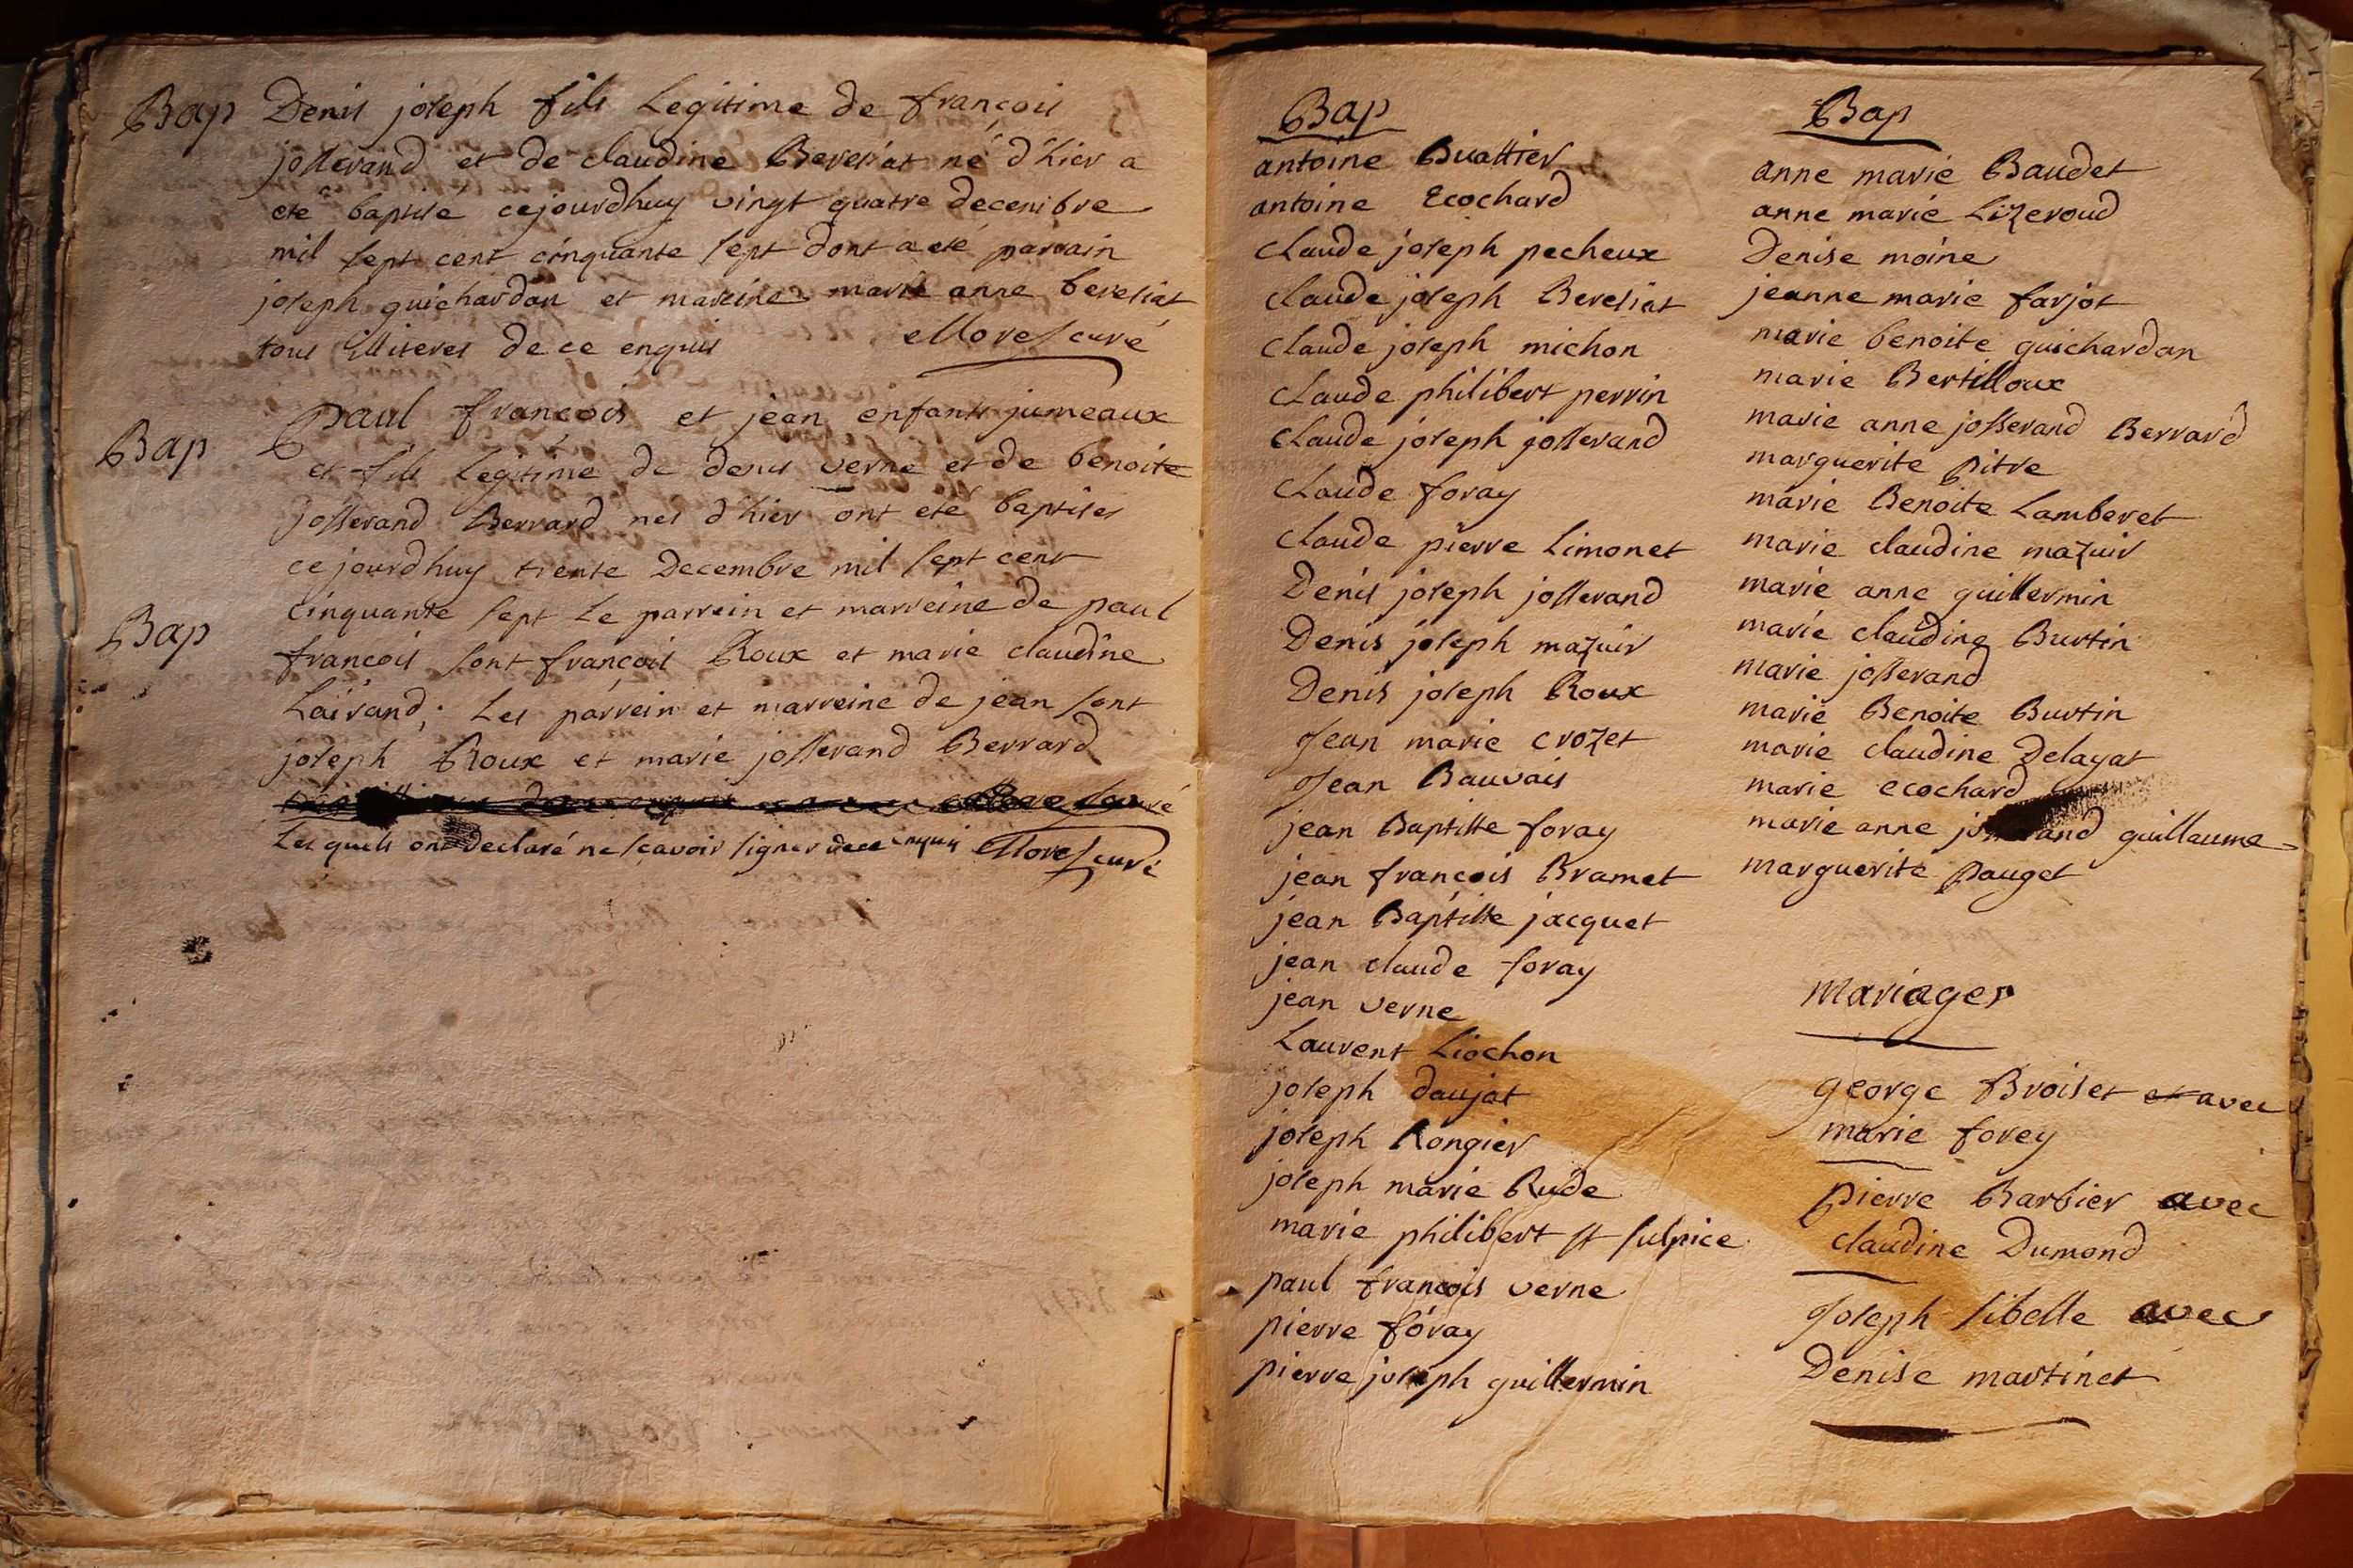 Bap
Denis joseph fils Legitime de françois
josserand et de claudine Bereziat né d'hier a
eté baptisé cejourdhuy vingt quatre decembre
mil sept cent cinquante sept dont a eté parrain
joseph guichardon et mareine marie anne bereziat
tous illiteres de ce enquis
Morel curé
Bap
paul francois et jean enfants jumeaux
et fils Legitime de denis verne et de benoite
Josserand Berrard nes d'hier ont eté baptises
cejourdhuy trente Decembre mil sept cent
cinquante sept Le parrein et marreine de paul
Bap
francois sont françois Roux et marie claudine
Lairand; Les parrein et marreine de jean sont
joseph Roux et marie josserand Berrard
Les quels ont declaré ne sçavoir signer de ce enquis Morel curé
Bap
antoine Buattier
antoine Ecochard
claude joseph pecheux
claude joseph Bereziat
claude joseph michon
claude philibert perrin
claude joseph josserand
claude foray
claude pierre Limonet
Denis joseph josserand
Denis joseph mazuir
Denis joseph Roux
Jean marie crozet
Jean Bauvais
jean Baptiste foray
jean francois Bramet
jean Baptiste jacquet
jean claude foray
jean verne
Laurent Liochon
joseph daujat
joseph Rongier
joseph marie Rude
marie philibert st sulpice
paul francois verne
pierre foray
pierre joseph guillermin
Bap
anne marie Baudet
anne marie Lizeroud
Denise moine
jeanne marie farjot
marie benoite guichardon
marie Bertilloux
marie anne josserand Berrard
marguerite pitre
marie Benoite Lamberet
marie claudine mazuir
marie anne guillermin
marie claudine Burtin
marie josserand
marie Benoite Burtin
marie claudine Delayat
marie ecochard
marie anne josserand guillaume
marguerite pauget
mariages
george Broiset et avec
marie forey
pierre Barbier avec
claudine Dumond
Joseph sibelle avec
Denise martinet